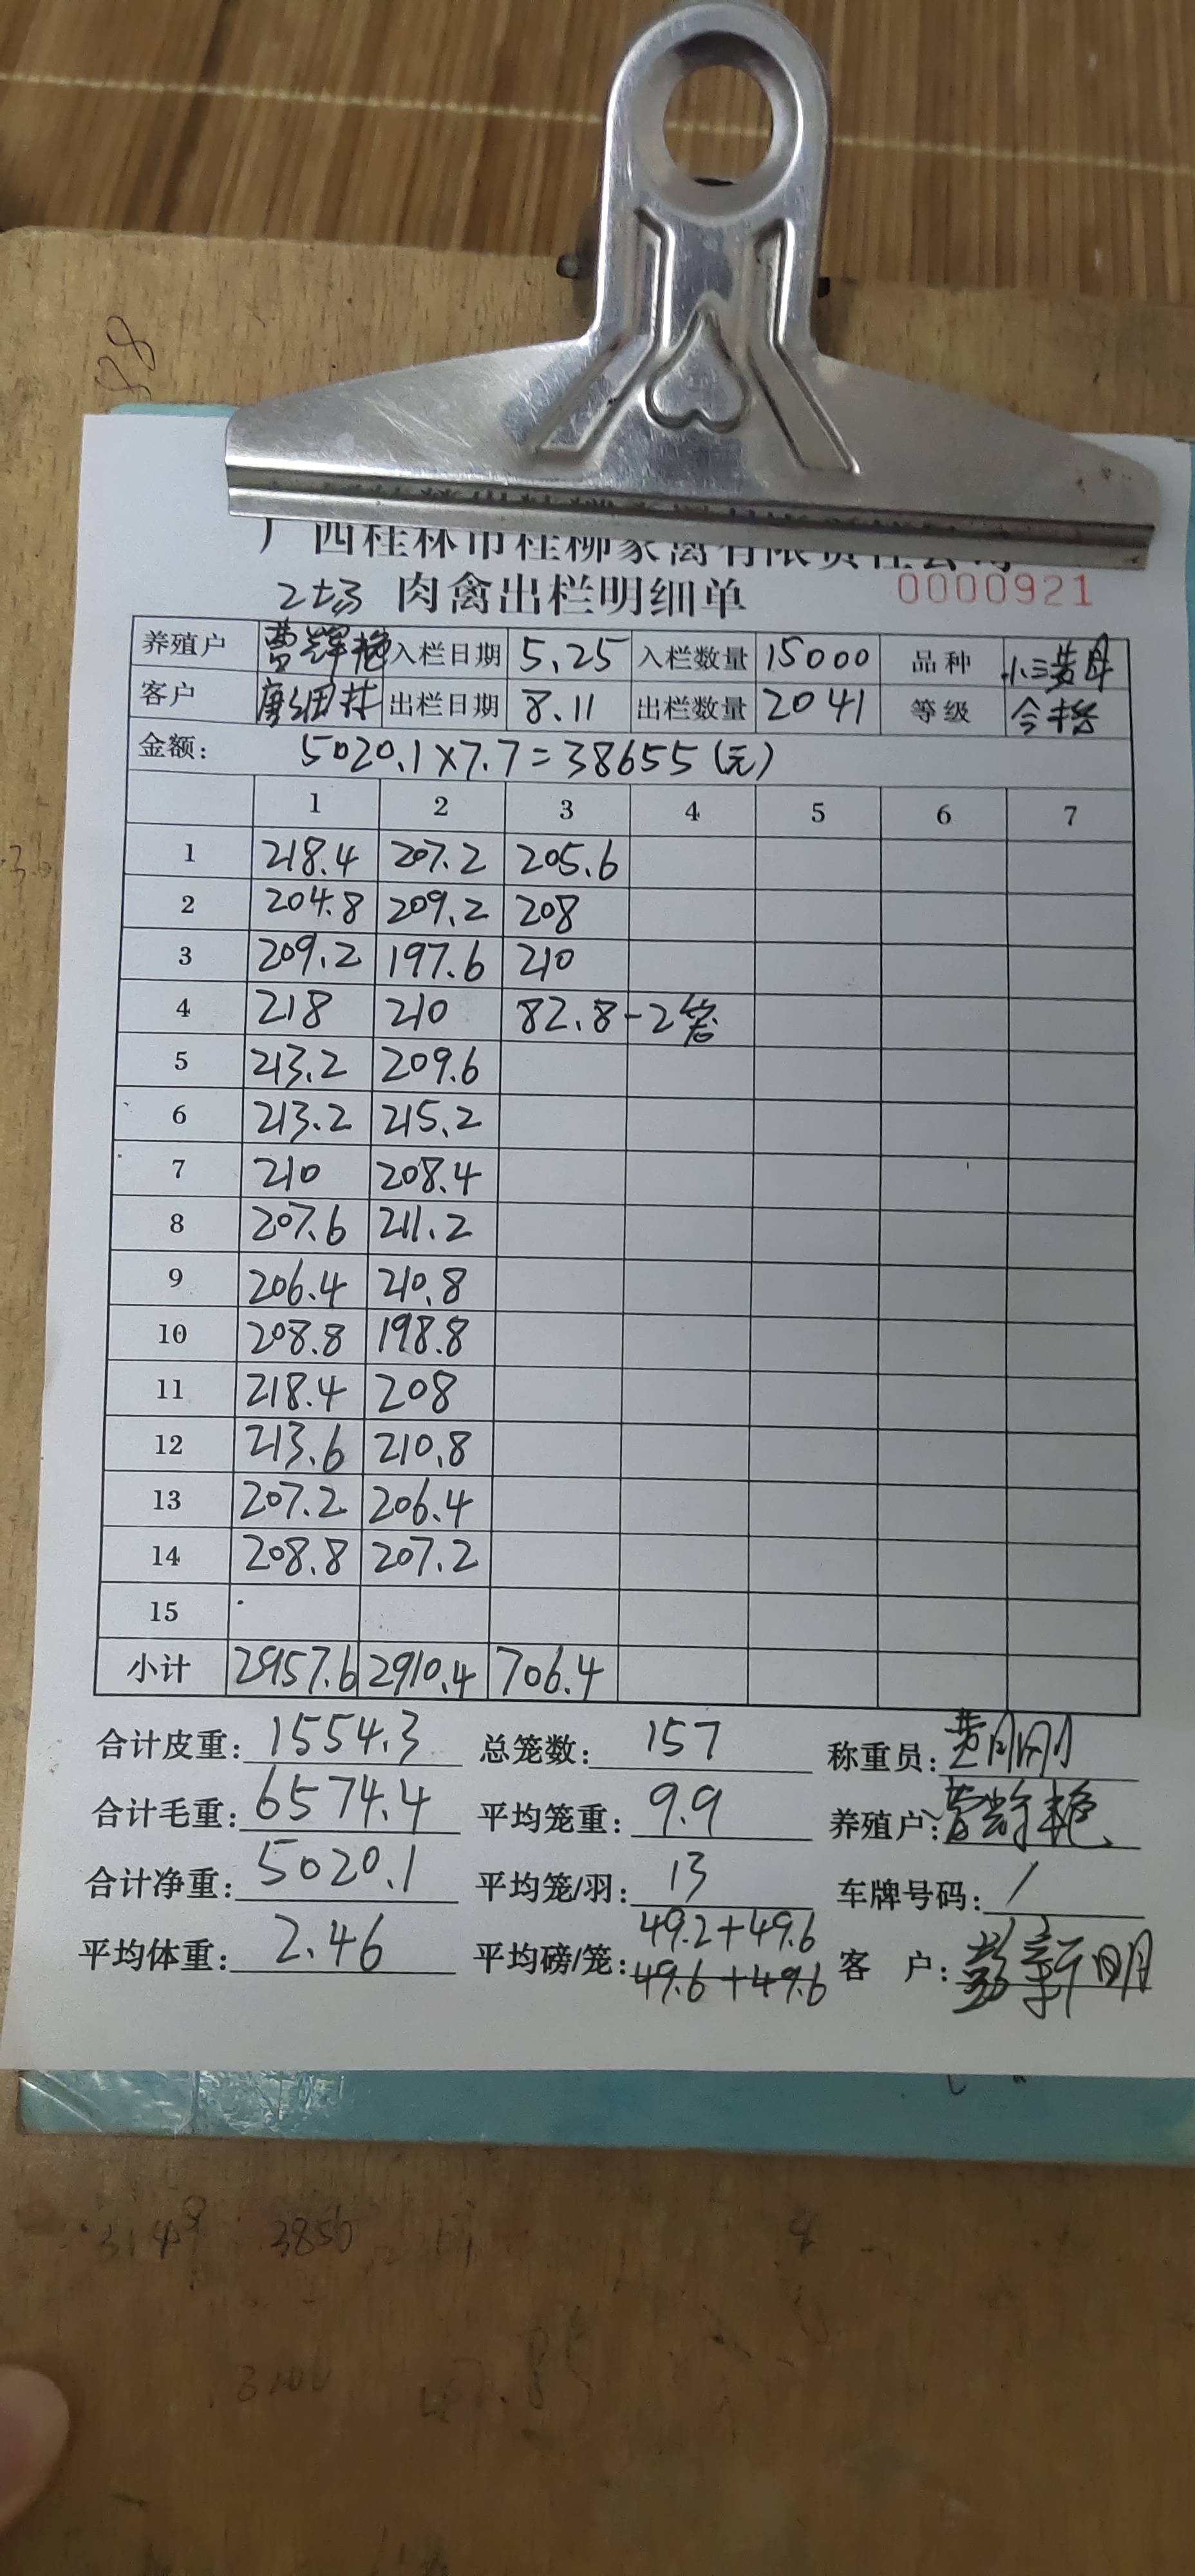 广西桂林市桂柳家禽有限责任公司
2场 肉禽出栏明细单 0000921
养殖户 曹辉艳 入栏日期 5.25 入栏数量 15000 品种 小三黄母
客户 唐细林 出栏日期 8.11 出栏数量 2041 等级 合格
金额: 5020.1×7.7=38655(元)
1 2 3 4 5 6 7
1 218.4 207.2 205.6
2 204.8 209.2 208
3 209.2 197.6 210
4 218 210 82.8-2笼
5 213.2 209.6
6 213.2 215.2
7 210 208.4
8 207.6 211.2
9 206.4 210.8
10 208.8 198.8
11 218.4 208
12 213.6 210.8
13 207.2 206.4
14 208.8 207.2
15
小计 2957.6 2910.4 706.4
合计皮重: 1554.3 总笼数: 157 称重员: 黄刚
合计毛重: 6574.4 平均笼重: 9.9 养殖户: 曹辉艳
合计净重: 5020.1 平均笼/羽: 13 车牌号码: /
49.2+49.6
平均体重: 2.46 平均磅/笼: 49.6+49.6 客 户: 彭新明
3850